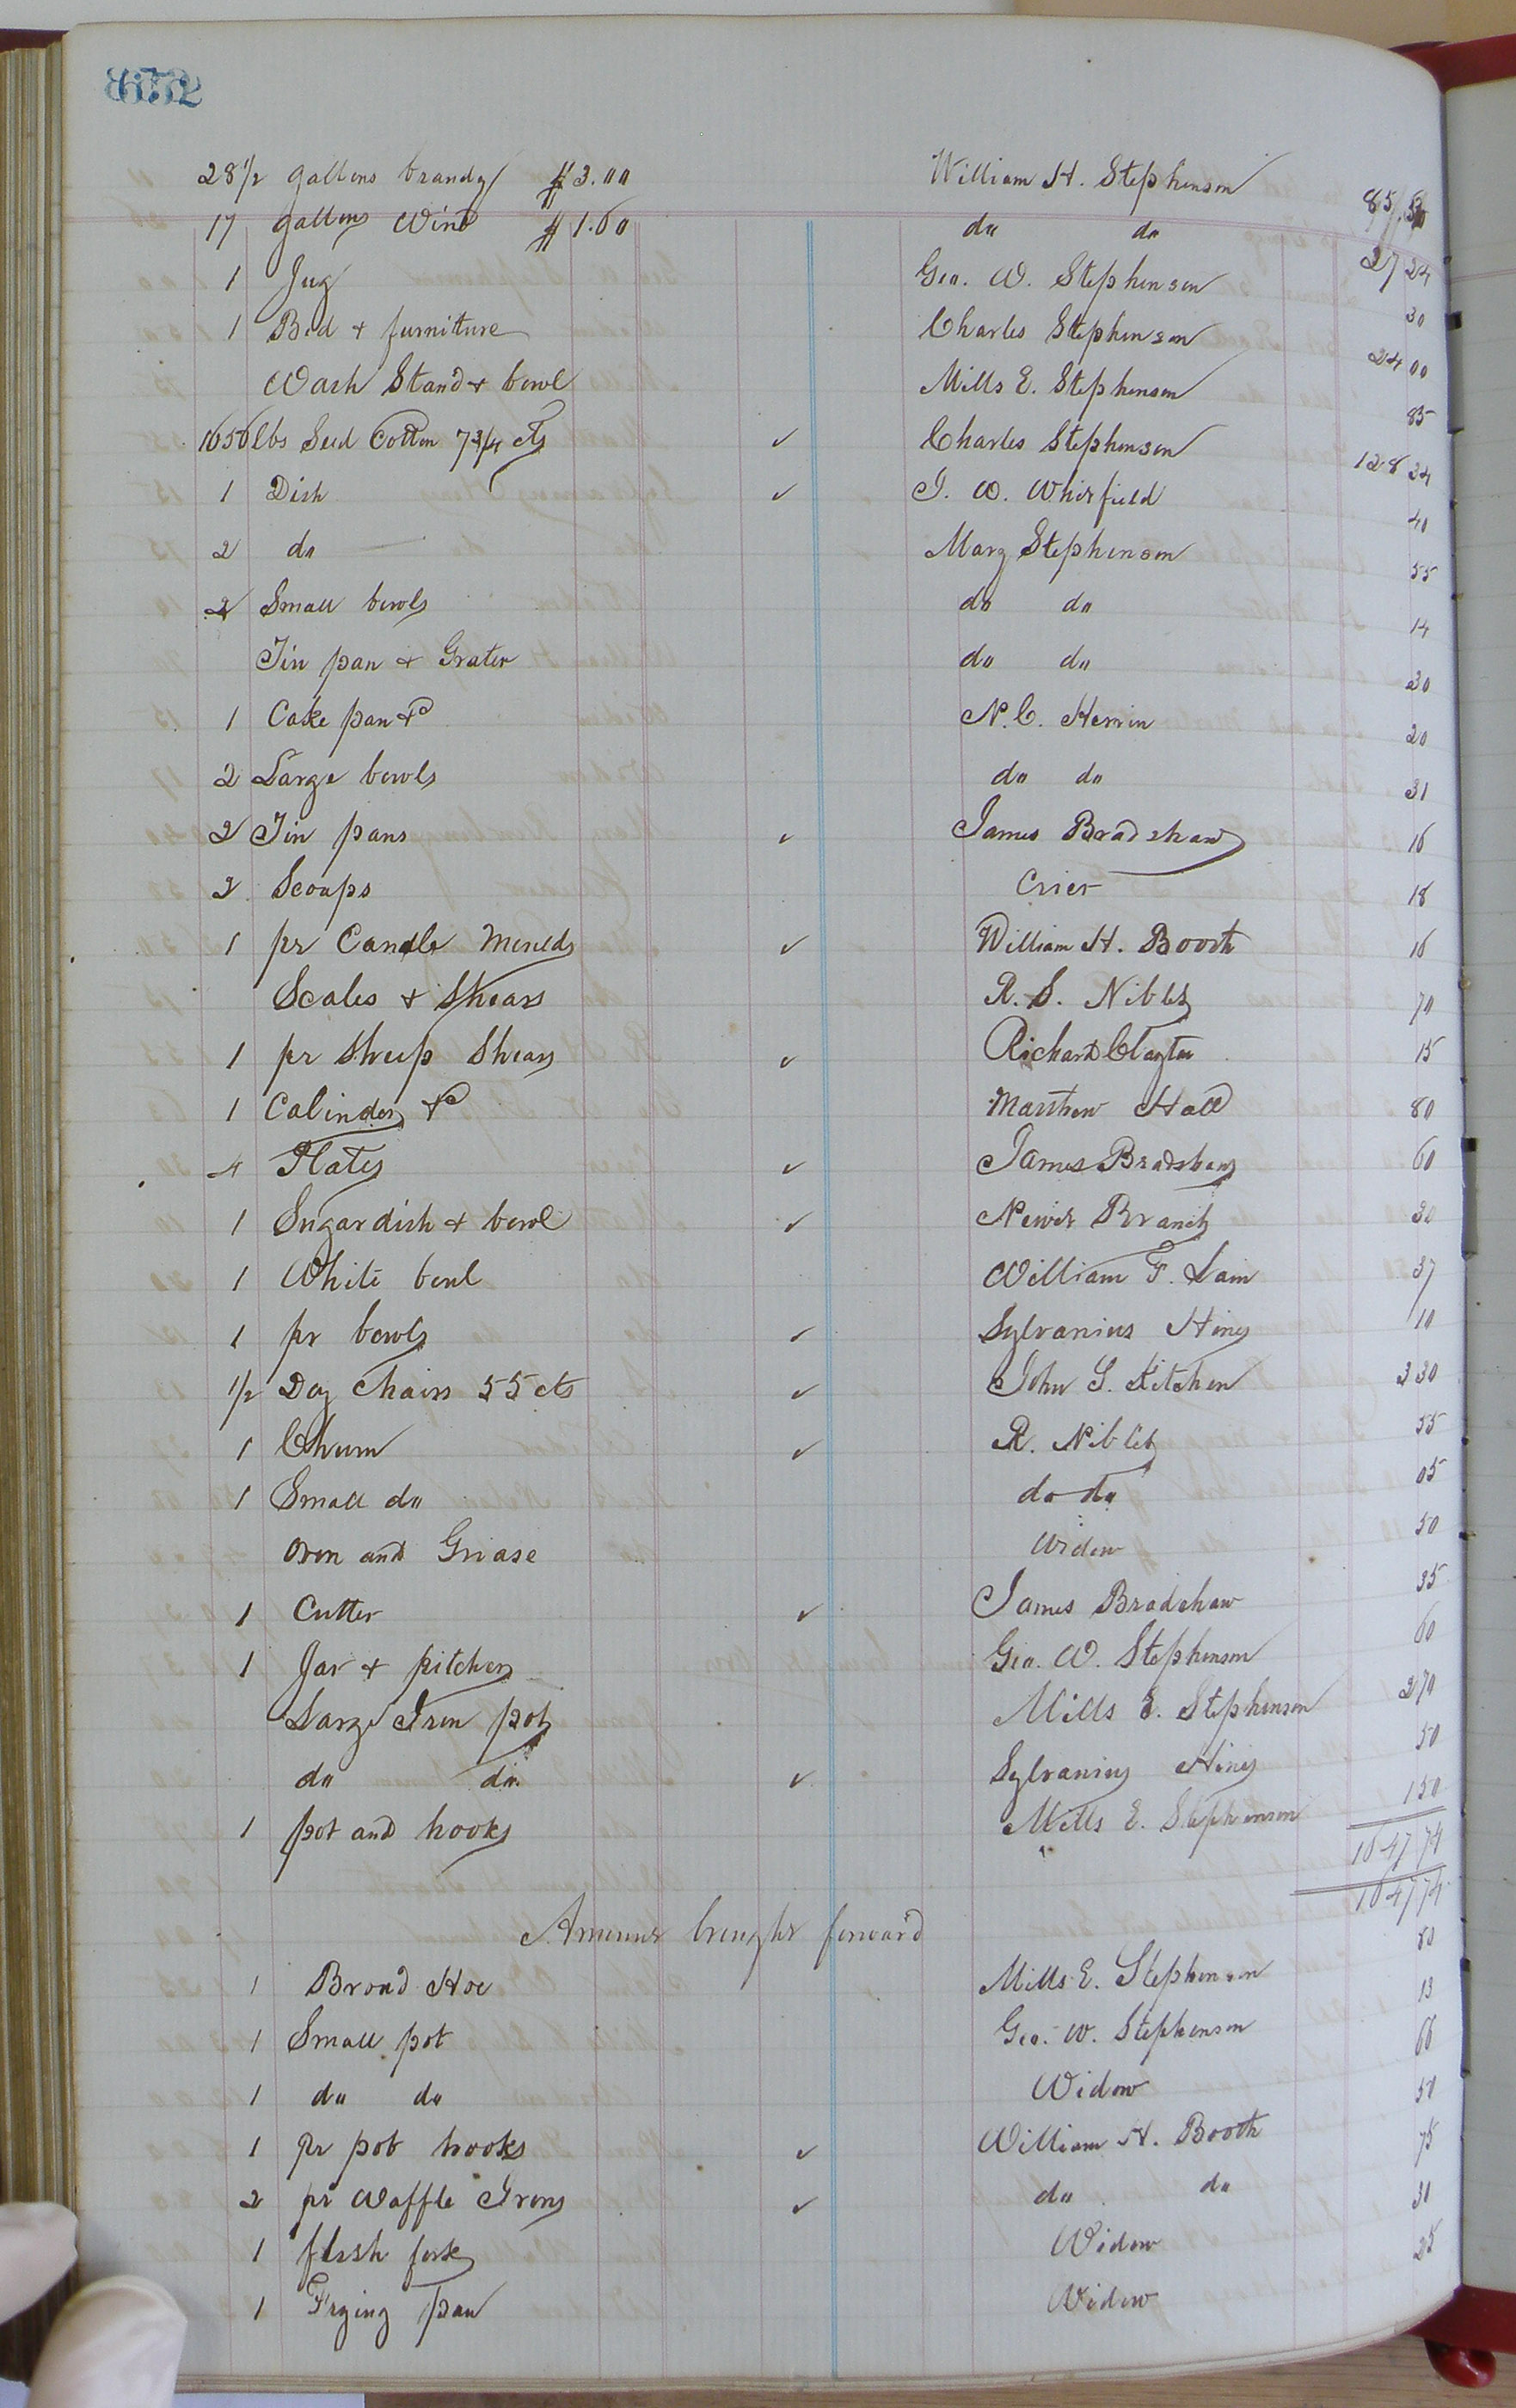 28 1/2 gallons brandy $3.00 William H. Stephenson 85.50
17 gallons Wine $1.60 do do 27 24
1 Jug Geo. W. Stephenson 30
1 Bed & furniture Charles Stephenson 24 00
Wash Stand & bowl Mills E. Stephenson 85
1656 lbs Seed Cotton 7 3/4 cts ✓ Charles Stephenson 128 34
1 Dish ✓ J. W. Whitfield 40
2 do Mary Stephenson 55
2 Small bowls do do 14
Tin pan & Grater do do 30
1 Cake pan &c N. C. Herrin 20
2 Large bowls do do 31
2 Tin pans ✓ James Bradshaw 16
2 Scoups Crier 18
1 pr Candle Moulds ✓ William H. Booth 16
Scales & Shears R. S. Niblet 70
1 pr Sheep Shears ✓ Richard Clayton 15
1 Calinder &c Matthew Hall 80
4 Plates ✓ James Bradshaw 60
1 Sugar dish & bowl ✓ Newit Branch 30
1 White bowl William F. Lain 37
1 pr bowls ✓ Sylvanius Hines 10
1/2 Doz Chairs 55 cts ✓ John S. Kitchen 3 30
1 Churn ✓ R. Niblet 55
1 Small do do do 05
Oven and Grease Widow 50
1 Cutter ✓ James Bradshaw 35
1 Jar & pitcher Geo. W. Stephenson 60
Large Iron pot Mills E. Stephenson 2 70
do do ✓ Sylvanius Hines 50
1 pot and hooks Mills E. Stephenson 1 50
1647 74
Amount brought forward 1647 74
1 Broad Hoe Mills E. Stephenson 80
1 Small pot Geo. W. Stephenson 13
1 do do Widow 66
1 pr pot hooks ✓ William H. Booth 50
2 pr Waffle Irons ✓ do do 75
1 flesh fork Widow 30
1 Frying pan Widow 25